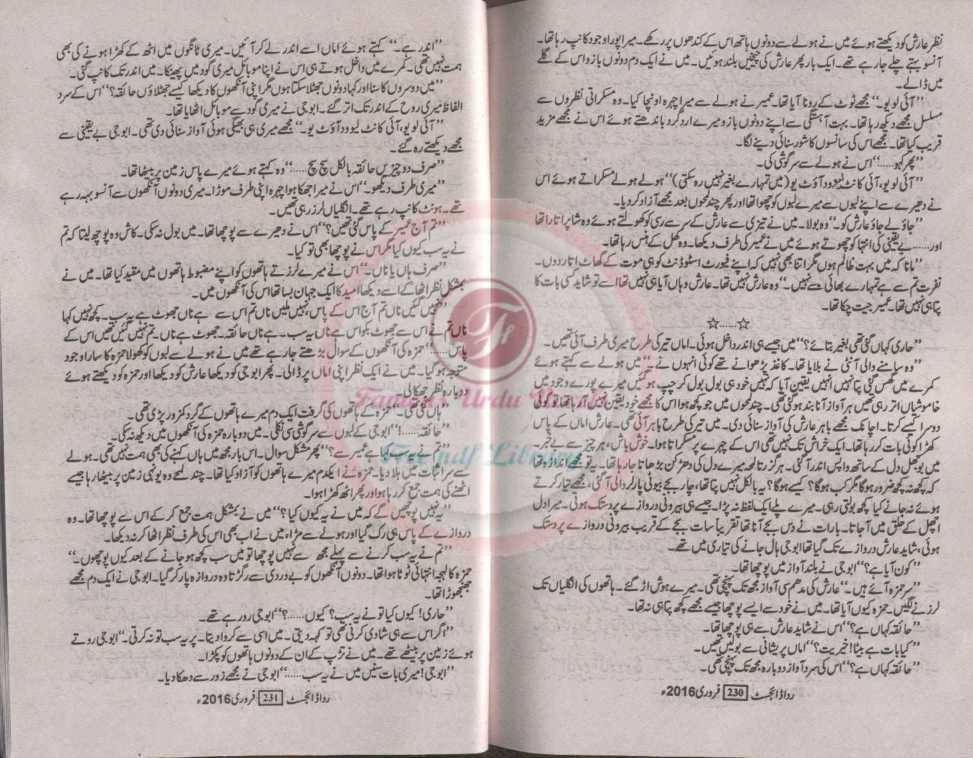 نظر عارش کو دیکھتے ہوئے میں نے ہولے سے دونوں ہاتھ اس کے کندھوں پر رکھے۔ میرا پورا وجود کانپ رہا تھا۔
آنسو بہتے چلے جا رہے تھے۔ ایک بار پھر عارش کی چیخیں بلند ہوئیں۔ میں نے ایک دم دونوں بازو اس کے گلے
میں ڈالے۔
’’آئی لو یو۔‘‘ مجھے ٹوٹ کے رونا آیا تھا۔ عمیر نے ہولے سے میرا چہرہ اونچا کیا۔ وہ مسکراتی نظروں سے
مسلسل مجھے دیکھ رہا تھا۔ بہت آہستگی سے اپنے دونوں بازو میرے اردگرد باندھتے ہوئے اس نے مجھے مزید
قریب کیا تھا۔ مجھے اس کی سانسوں کا شور سنائی دینے لگا۔
’’پھر کہو......‘‘ اس نے ہولے سے سرگوشی کی۔
’’آئی لو یو، آئی کانٹ لیوود آؤٹ یو (میں تمہارے بغیر نہیں رہ سکتی)‘‘ ہولے ہولے مسکراتے ہوئے اس
نے دھیرے سے اپنے لبوں سے میرے لبوں کو چھوا تھا اور پھر چند لمحوں بعد مجھے آزاد کر دیا۔
’’جاؤ لے جاؤ عارش کو۔‘‘ وہ بولا۔ میں نے تیزی سے عارش کے سر سے رسی کو کھولتے ہوئے وہ شاپر اتارا تھا
اور...... بے یقینی کی انتہا کو چھوتے ہوئے میں نے عمیر کی طرف دیکھا۔ وہ کھل کے ہنس رہا تھا۔
’’مانا کہ میں بہت ظالم ہوں مگر اتنا بھی نہیں کہ اپنے فیورٹ اسٹوڈنٹ کو ہی موت کے گھاٹ اتار دوں۔
نفرت تم سے ہے تمہارے بھائی سے نہیں۔‘‘ وہ عارش نہیں تھا۔ عارش وہاں آیا ہی نہیں تھا اسے تو شاید کسی بات کا
پتا ہی نہیں تھا۔ عمیر جیت چکا تھا۔
☆......☆
’’حاری کہاں گئی تھی بغیر بتائے؟‘‘ میں جیسے ہی اندر داخل ہوئی۔ اماں تیر کی طرح میری طرف آئی تھیں۔
’’وہ سامنے والی آنٹی نے بلایا تھا۔ کاغذ پڑھوانے تھے کوئی انہوں نے‘‘ میں ہولے سے کہتے ہوئے
کمرے میں گھس گئی پتا نہیں انہیں یقین آیا کہ نہیں خود ہی بول بول کر چپ ہو گئیں میرے پورے وجود میں
خاموشیاں اتر رہی تھیں ہر آواز آنا بند ہو گئی تھی۔ چند لمحوں میں جو کچھ ہوا اس کا مجھے خود یقین نہیں ہو رہا تھا تو کوئی
دوسرا کیسے کرتا۔ اچانک مجھے باہر عارش کی آواز سنائی دی۔ میں تیر کی طرح باہر آئی تھی۔ عارش اماں کے پاس
کھڑا کوئی بات کر رہا تھا۔ ایک خراش تک نہیں تھی اس کے چہرے پر مسکراتا ہوا۔ خوش باش، ہر چیز سے بے خبر۔
میں بوجھل دل کے ساتھ واپس اندر آ گئی۔ ہر گزرتا لمحہ میرے دل کی دھڑکن بڑھاتا جا رہا تھا۔ یہ تو مجھے اندازہ تھا
کہ کچھ نہ کچھ ضرور ہو گا مگر کب ہو گا؟ کیسے ہو گا؟ یہ بالکل نہیں پتا تھا، چار بجے بیوٹی پارلر والی آئی، مجھے تیار کرتے
ہوئے نہ جانے کیا کچھ بولتی رہی۔ میرے پلے ایک لفظ نہ پڑا۔ جیسے ہی بیرونی دروازے پر دستک ہوئی۔ میرا دل
اچھل کے حلق میں آ جاتا۔ بارات نے دس بجے آنا تھا تقریباً سات بجے کے قریب بیرونی دروازے پر دستک
ہوئی، شاید عارش دروازے تک گیا تھا ابو جی ہال جانے کی تیاری میں تھے۔
’’کون آیا ہے؟‘‘ ابو جی نے بلند آواز میں پوچھا تھا۔
’’سر حمزہ آئے ہیں۔‘‘ عارش کی مدھم سی آواز مجھ تک پہنچی تھی۔ میرے ہوش اڑ گئے۔ ہاتھوں کی انگلیاں تک
لرزنے لگیں۔ حمزہ کیوں آیا تھا۔ میں نے خود سے ایسے پوچھا جیسے مجھے کچھ پتا ہی نہ تھا۔
’’حائقہ کہاں ہے؟‘‘ اس نے شاید عارش سے ہی پوچھا تھا۔
’’کیا بات ہے بیٹا! خیریت؟‘‘ اماں پریشانی سے بولیں تھیں۔
’’حائقہ کہاں ہے؟‘‘ اس کی سرد آواز دوبارہ مجھ تک پہنچی تھی۔
رداڈائجسٹ 230 فروری 2016ء
’’اندر ہے۔‘‘ کہتے ہوئے اماں اسے اندر لے کر آئیں۔ میری ٹانگوں میں اٹھ کے کھڑا ہونے کی بھی
ہمت نہیں تھی۔ کمرے میں داخل ہوتے ہی اس نے اپنا موبائل میری گود میں پھینکا۔ میں اندر تک کانپ گئی۔
’’میں دوسروں کا سنا اور کہا دونوں جھٹلا سکتا ہوں مگر اپنی آنکھوں کا دیکھا کیسے جھٹلاؤں حائقہ؟‘‘ اس کے سرد
الفاظ میری روح کے اندر تک اتر گئے۔ ابو جی نے میری گود سے موبائل اٹھایا تھا۔
’’آئی لو یو، آئی کانٹ لیوود آؤٹ یو۔‘‘ مجھے میری ہی بھیگی ہوئی آواز سنائی دی تھی۔ ابو جی بے یقینی سے
مجھے دیکھتے رہ گئے۔
’’صرف دو چیزیں حائقہ بالکل سچ سچ......‘‘ وہ کہتے ہوئے میرے پاس زمین پر بیٹھا تھا۔
’’میری طرف دیکھو۔‘‘ اس نے میرا جھکا ہوا چہرہ اپنی طرف موڑا۔ میری دونوں آنکھوں سے آنسو بہہ رہے
تھے۔ ہونٹ کانپ رہے تھے۔ انگلیاں لرز رہی تھیں۔
’’تم آج عمیر کے پاس گئی تھیں؟‘‘ اس نے دھیرے سے پوچھا تھا۔ میں بول نہ سکی۔ کاش وہ پوچھ لیتا کہ تم
نے یہ سب کیوں کیا مگر اس نے پوچھا بھی تو کیا۔
’’صرف ہاں یا ناں۔‘‘ اس نے میرے لرزتے ہاتھوں کو اپنے مضبوط ہاتھوں میں مقید کیا تھا۔ میں نے
بمشکل نظر اٹھا کے اسے دیکھا امید کا ایک جہان بسا تھا اس کی آنکھوں میں۔
’’نہیں گئیں ناں تم آج اس کے پاس، نہیں ملیں ناں تم اس سے ہناں جھوٹ ہے یہ سب۔ کچھ نہیں کہا
ناں تم نے اس سے جھوٹ بکواس ہے ناں یہ سب۔ ہے ناں حائقہ۔ جھوٹ ہے ناں۔ تم نہیں گئیں تھیں اس کے
پاس......‘‘ حمزہ کی آنکھوں کے سوال بڑھتے جا رہے تھے میں نے ہولے سے لبوں کو کھولا حمزہ کا سارا وجود
متوجہ ہو گیا۔ میں نے ایک نظر اپنی اماں پر ڈالی۔ پھر ابو جی کو دیکھا عارش کو دیکھا اور حمزہ کو دیکھتے ہوئے
دوبارہ نظر جھکا لی۔
’’ہاں گئی تھی۔‘‘ حمزہ کے ہاتھوں کی گرفت ایک دم میرے ہاتھوں کے گرد کمزور پڑی تھی۔
’’حائقہ......!‘‘ ابو جی کے لبوں سے سرگوشی سی نکلی۔ میں دوبارہ حمزہ کی آنکھوں میں دیکھ نہ سکی۔
’’تم نے یہ سب کہا ہے عمیر سے؟‘‘ پھر مشکل سوال۔ اس بار مجھ میں ہاں کہنے کی بھی ہمت نہیں تھی۔ ہولے
سے سر اثبات میں ہلا دیا۔ حمزہ نے ایکدم میرے ہاتھوں کو آزاد کیا تھا۔ چند لمحے وہ یونہی زمین پر بیٹھا رہا جیسے
اٹھنے کی ہمت جمع کر رہا ہو اور پھر اٹھ کھڑا ہوا۔
’’یہ نہیں پوچھیں گے کہ میں نے یہ کیوں کیا؟‘‘ میں نے بمشکل ہمت جمع کر کے اس سے پوچھا تھا۔ وہ
دروازے کے پاس ہی رک گیا اور ہولے سے مڑا، میں نے اب بھی اس کی طرف نظر اٹھا کر نہ دیکھا۔
’’تم نے یہ سب کرنے سے پہلے مجھ سے نہیں پوچھا تو میں سب کچھ ہو جانے کے بعد کیوں پوچھوں۔‘‘
حمزہ کا لہجہ انتہائی ٹوٹا ہوا تھا۔ دونوں آنکھوں کو بے دردی سے رگڑتا وہ دروازہ پار کر گیا۔ ابو جی نے ایک دم مجھے
جھنجھوڑا تھا۔
’’حاری! کیوں کیا تو نے یہ سب؟ کیوں......؟‘‘ ابو جی رو رہے تھے۔
’’اگر اس سے ہی شادی کرنی تھی تو کہہ دیتی۔ میں اسی سے کروا دیتا۔ پر یہ سب تو نہ کرتی۔‘‘ ابو جی روتے
ہوئے زمین پر بیٹھے تھے۔ میں نے تڑپ کے ان کے دونوں ہاتھوں کو پکڑا۔
’’ابو جی! میری بات سنیں میں نے یہ سب......‘‘ ابو جی نے مجھے زور سے دھکا دیا۔
رداڈائجسٹ 231 فروری 2016ء
Famous Urdu Novels
Free pdf Library